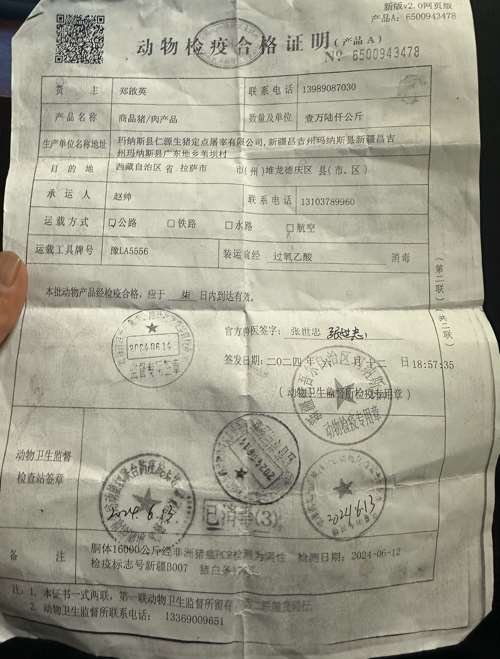 新版v2.0网页版
产品A: 6500943478
动物检疫合格证明(产品A)
№ 6500943478
货主 郑敛英 联系电话 13989087030
产品名称 商品猪/肉产品 数量及单位 壹万陆仟公斤
生产单位名称地址 玛纳斯县仁源生猪定点屠宰有限公司,新疆昌吉州玛纳斯县新疆昌吉
州玛纳斯县广东地乡羊圿村
目的地 西藏自治区 省 拉萨市 市(州) 堆龙德庆区 县(市、区)
承运人 赵帅 联系电话 13103789960
运载方式 ☑公路 □铁路 □水路 □航空
运载工具牌号 豫LA5556 装运前经 过氧乙酸 消毒
本批动物产品经检疫合格,应于 柒 日内到达有效。
官方兽医签字: 张世忠 张世忠
签发日期: 二〇二四年 六 月 十二 日 18:57:35
(动物卫生监督所检疫专用章)
2024.06.14
动物检疫专用章
动物卫生监督
检查站签章
2024.6.13
已消毒(3)
2024 6 13
备注 胴体16000公斤经非洲猪瘟PCR检测为阴性 检测日期: 2024-06-12
检疫标志号新疆B007
注: 1. 本证书一式两联, 第一联动物卫生监督所留存
2. 动物卫生监督所联系电话: 13369009651
(第二联)(共二联)